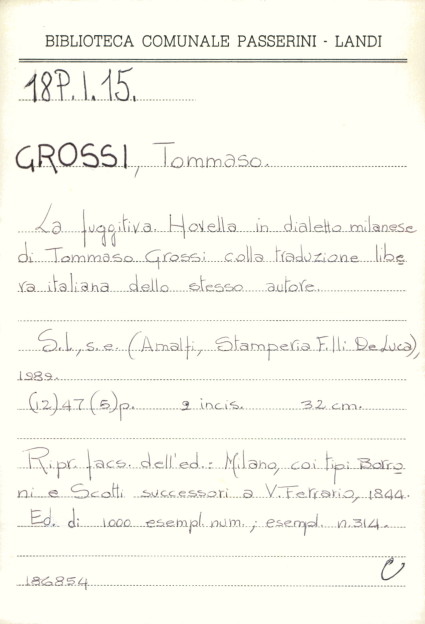 BIBLIOTECA COMUNALE PASSERINI - LANDI
18P.I.15.
GROSSI, Tommaso.
La fuggitiva. Novella in dialetto milanese
di Tommaso Grossi colla traduzione libe
ra italiana dello stesso autore.
S.l., s.e. (Amalfi, Stamperia F.lli De Luca),
1989.
(12)47(5)p. 2 incis. 32 cm.
Ripr. facs. dell'ed.: Milano, coi tipi Borro
ni e Scotti successori a V. Ferrario, 1844.
Ed. di 1000 esempl. num.; esempl. n.314.
186854